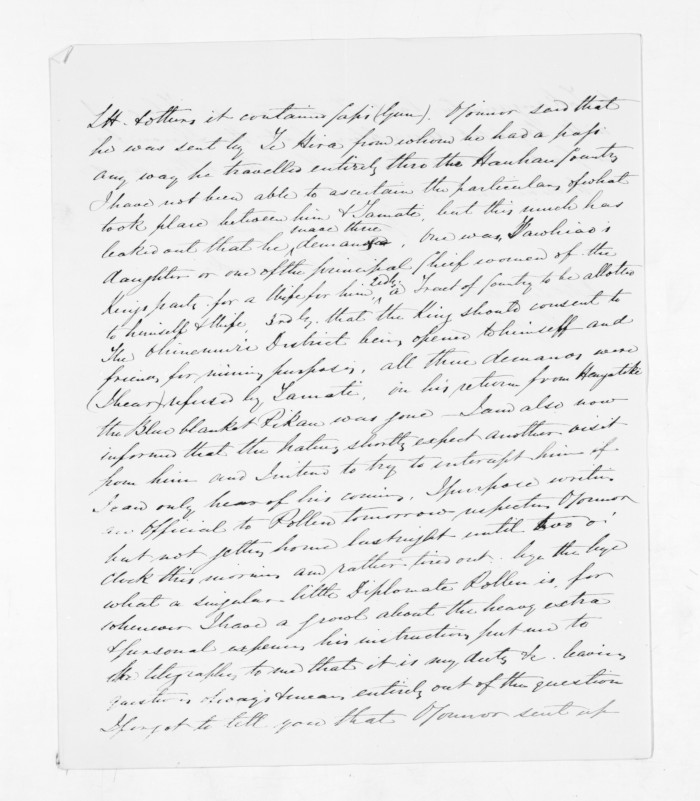 LH. & others it contained Caps (Gun). O'Connor said that
he was sent by Te Hira from whom he had a pass
any way he travelled entirely thro the Hauhau Country
I have not been able to ascertain the particulars of what
took place between him & Tamati, but this much has
leaked out that he made three demands, One was, Tawhiao's
daughter or one of the principal Chief women of the
Kings party for a Wife for him, 2ndly a Tract of Country to be allotted
to himself & Wife, 3rdly. that the King should consent to
The Ohinemuri District being opened to himself and
friends for mining purposes, all these demands were
(I hear) refused by Tamati, on his return from
the Blue blanket Pikau was gone – I am also now
informed that the natives shortly expect another visit
from him and I intend to try to intercept him if
I can only hear of his coming, I purpose writing
an Official to Pollen tomorrow respecting O'Connor
but not getting home last night until two o'
clock this morning am rather tired out. bye the bye
what a singular little Diplomate Pollen is, for
whenever I have a growl about the heavy extra
& personal expenses his instructions put me to
He telegraphs to me that it is my duty &c. leaving
question of ways & means entirely out of the question
I forgot to tell you that O'Connor sent up